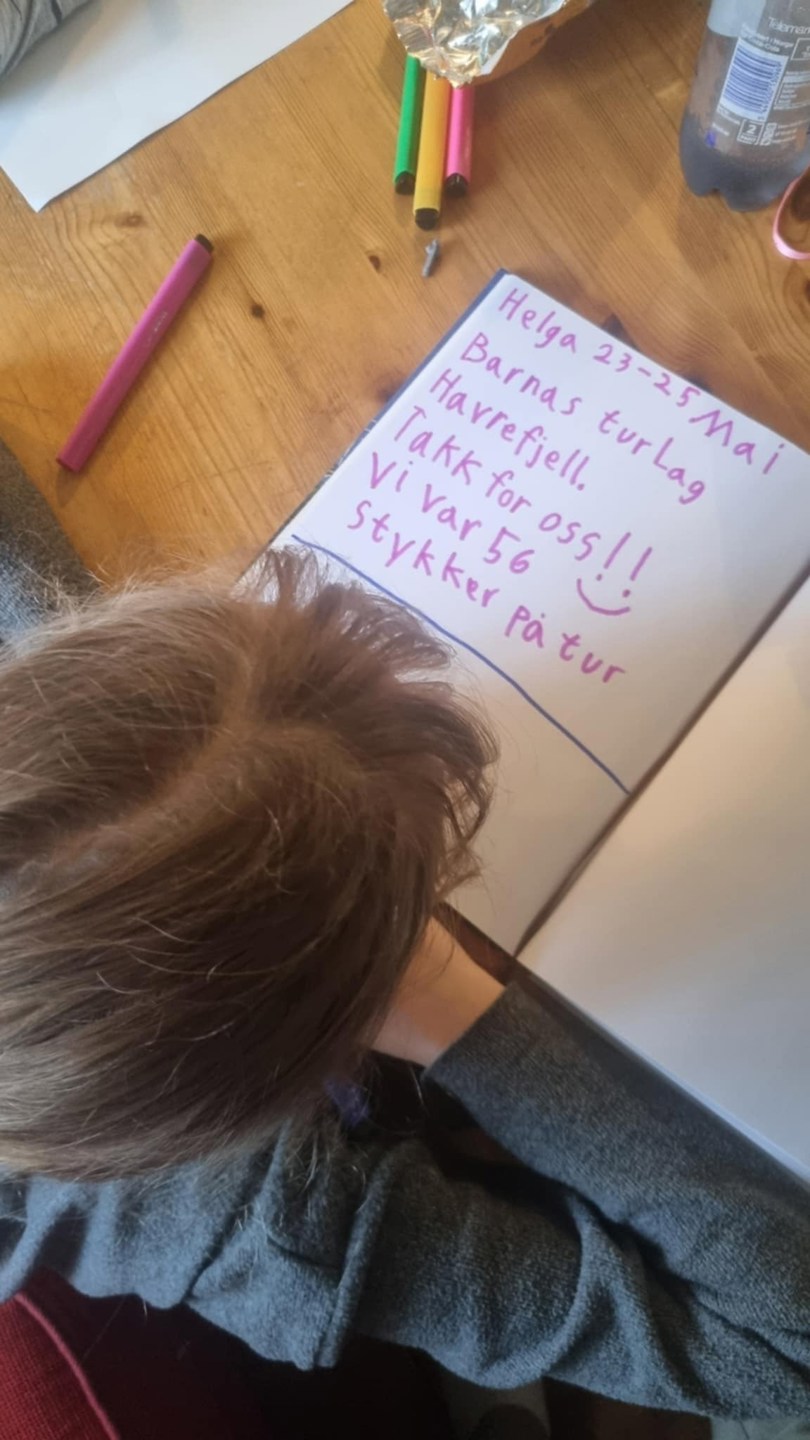 Helga 23-25 Mai
Barnas turLag
Havrefjell.
Takk for oss!!
Vi var 56
stykker på tur